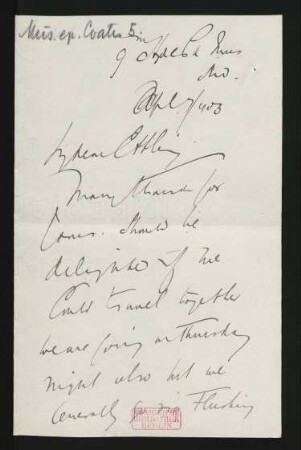 Mus. ep. Coates 5
9 Hyde Pk
Apl 7/903
My dear
Many thanks for
yours. Should be
delighted if we
Could travel together
we are going on Thursday
night also but we
Generally go via Flushing